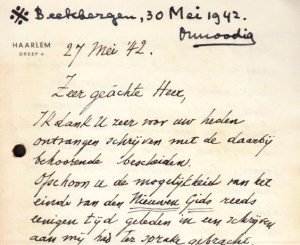 Beekbergen, 30 Mei 1942.
HAARLEM
27 Mei '42.
Zeer geachte Heer,
Ik dank U zeer voor uw heden
ontvangen schrijven met de daarbij
behoorende bescheiden.
Ofschoon U de mogelijkheid van het
einde van den Nieuwen Gids reeds
eenigen tijd geleden in een schrijven
aan mij had ter sprake gebracht